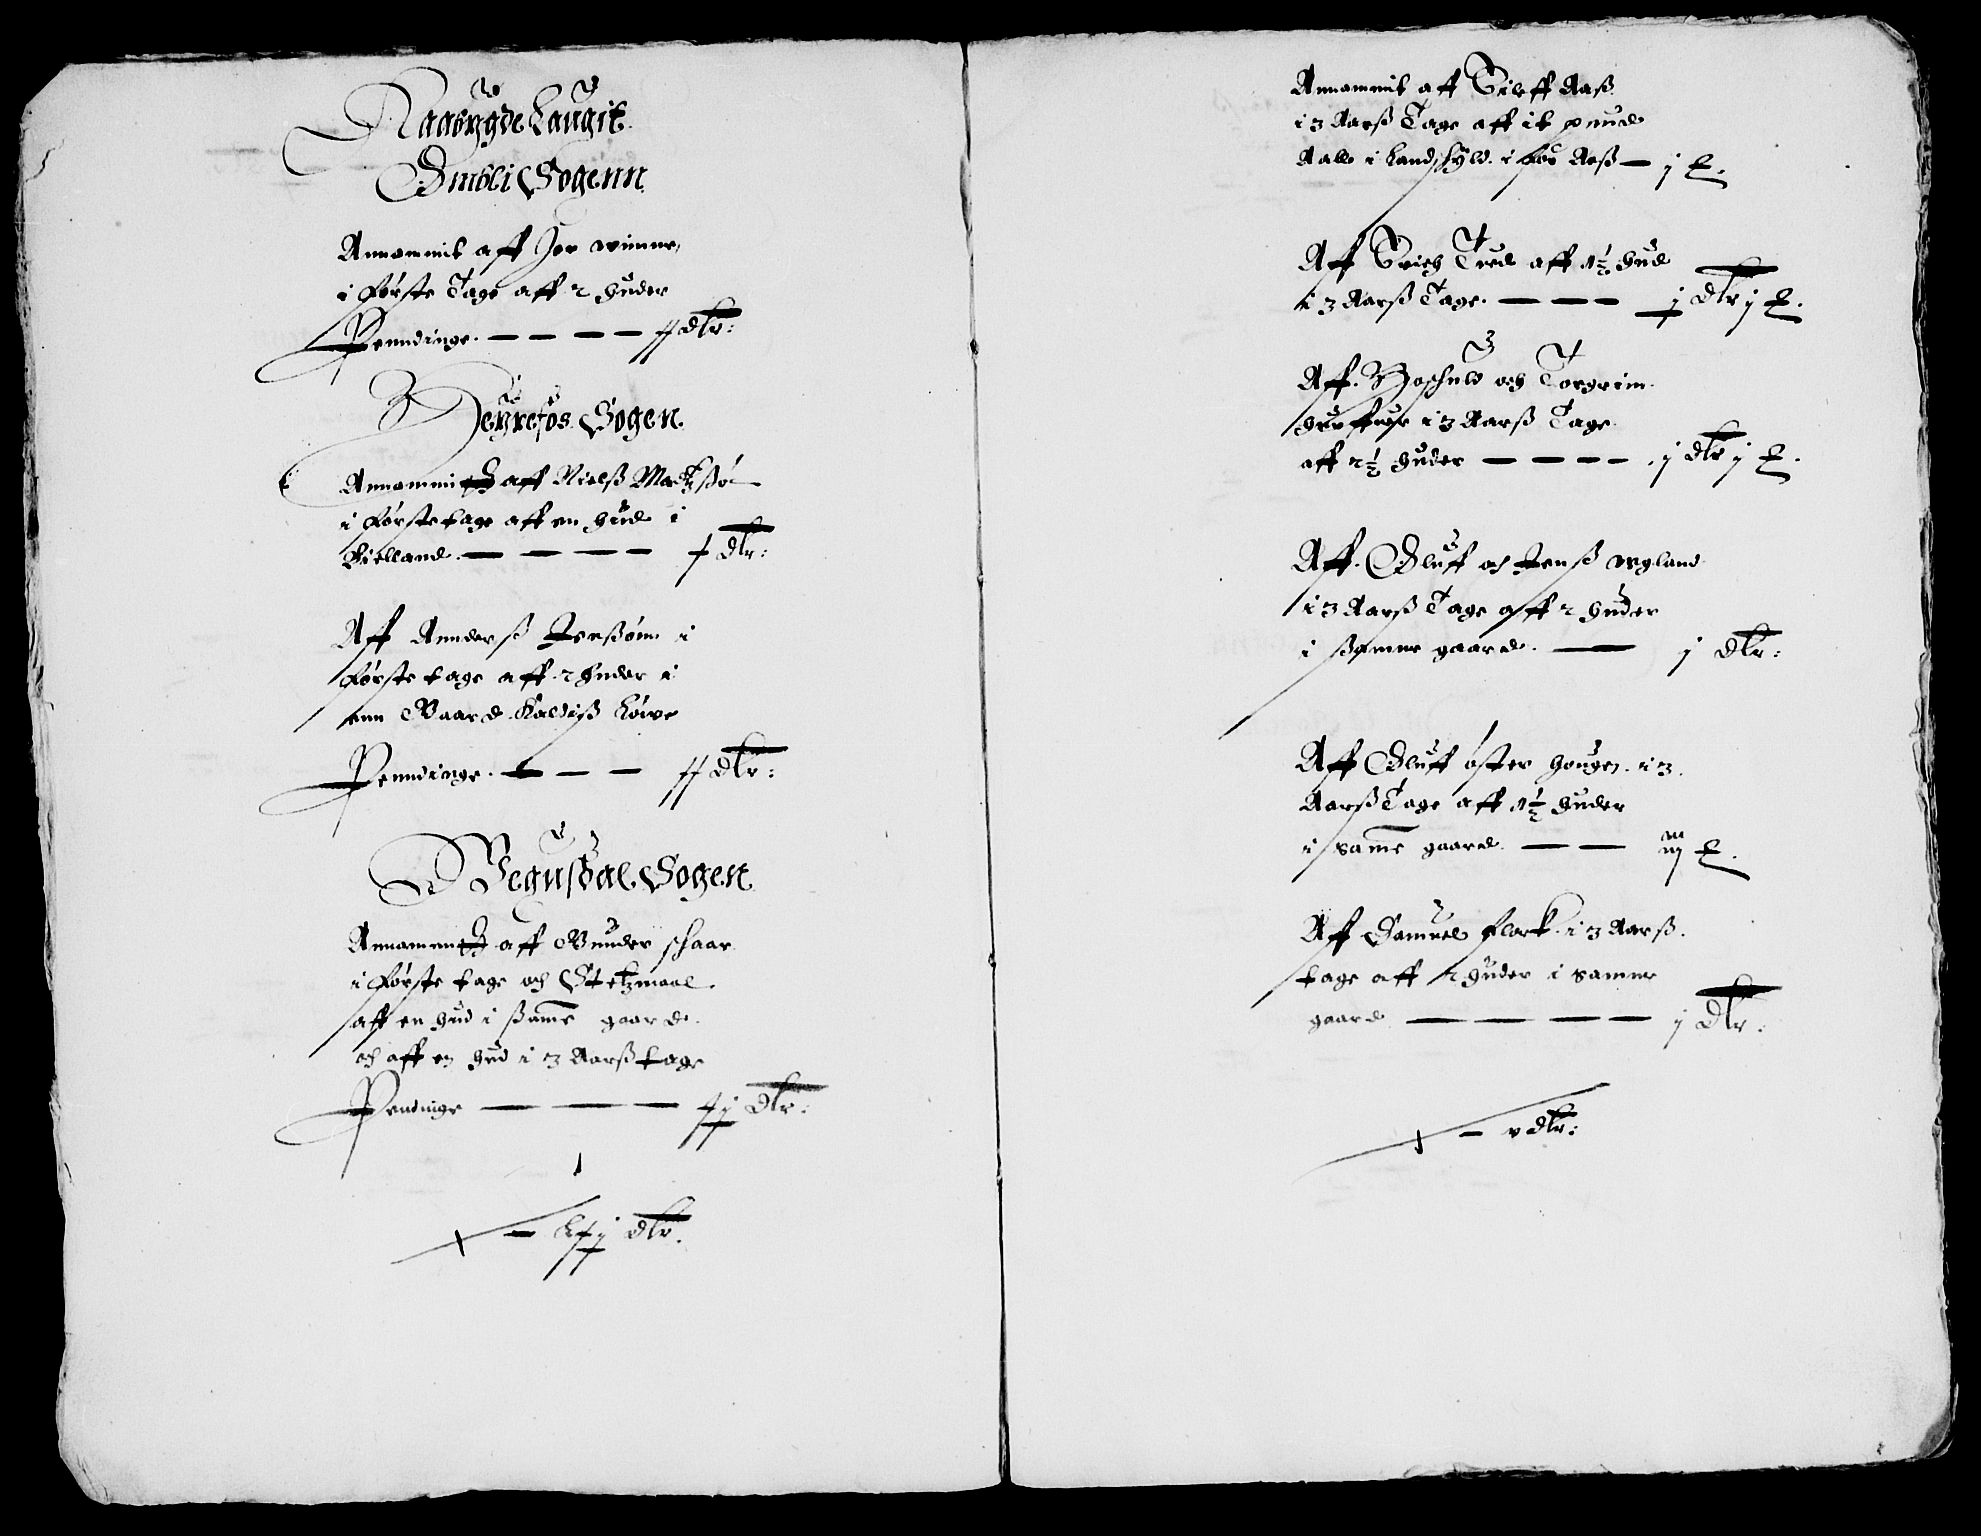 Raabygde Laugit.
Ombli Sogenn
Annammit aff Jor winne,
i Første Tage aff 2 huder
Penndinge. — — — — ij dlr:
Heyrefos Sogen
Annammit aff Nielß Madtzßø
i første tage aff en hud i
Bielland. — — — — j dlr:
Aff Annderß Jenßøn i
første tage aff 2 huder i
enn Gaard. Kaldiß Løwe
Penndinge. — — — ij dlr:
Wegusdal Sogen
Annammit aff Gunder schaar
i første tage och Stetzmaal
aff en hud i ßame gaard.
och aff en hud i 3 Aarß tage
Pendinge — — — ij dlr:
— dlr.
Annammit aff Sieff Aaß
i 3 Aarß Tage aff it pund
Aall i Landschyld i för Aaß — j
Aff Erich Tred aff 1½ hud
i 3 Aarß Tage. — — — j dlr j
Aff. Hoschuld och Torgrim
i 3 Aarß Tage
aff 2½ huder — — — — j dlr j
Aff. Oluff och Jenß wgland
i 3 Aarß Tage aff 2 huder
i ßamme gaard. — j dlr:
Aff Oluff øster hougen. i 3
Aarß Tage aff 1½ huder
i same gaard. — — iij
Aff Samuel flack. i 3 Aarß.
tage aff 2 huder i samme
gaard — — — — j dlr.
— v dlr: